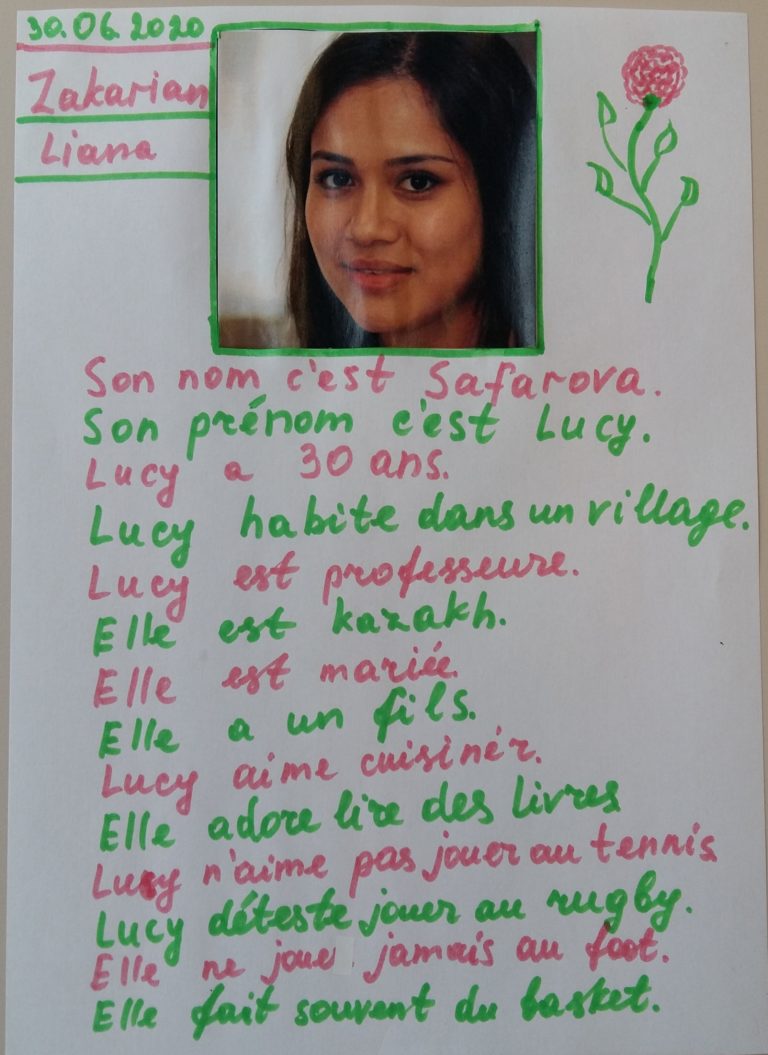 30.06.2020
Zakarian
Liana
Son nom c'est Safarova.
Son prénom c'est Lucy.
Lucy a 30 ans.
Lucy habite dans un village.
Lucy est professeure.
Elle est kazakh.
Elle est mariée.
Elle a un fils.
Lucy aime cuisinér.
Elle adore lire des livres
Lucy n'aime pas jouer au tennis
Lucy déteste jouer au rugby.
Elle ne joue jamais au foot.
Elle fait souvent du basket.